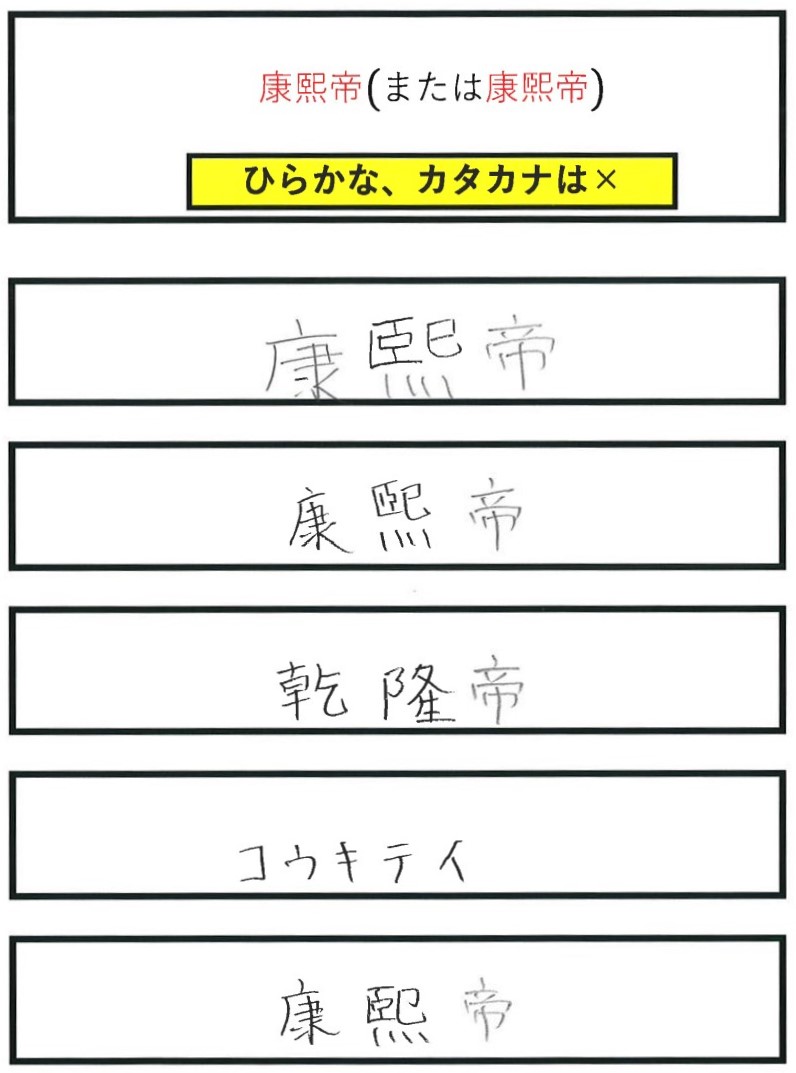 康熙帝(または康熙帝)
ひらかな、カタカナは×
康熙帝
康熙帝
乾隆帝
コウキテイ
康熙帝